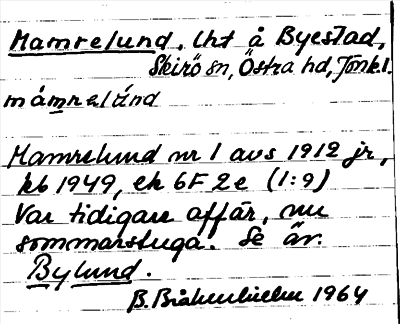 Hamrelund, lht å Byestad,
Skirö sn, Östra hd, Jönk. l.
hámrelúnd
Hamrelund nr 1 avs 1912 jr,
kb 1949, ek 6F 2e (1:9)
Var tidigare affär, nu
sommarstuga. Se äv.
Bylund.
B. 1964